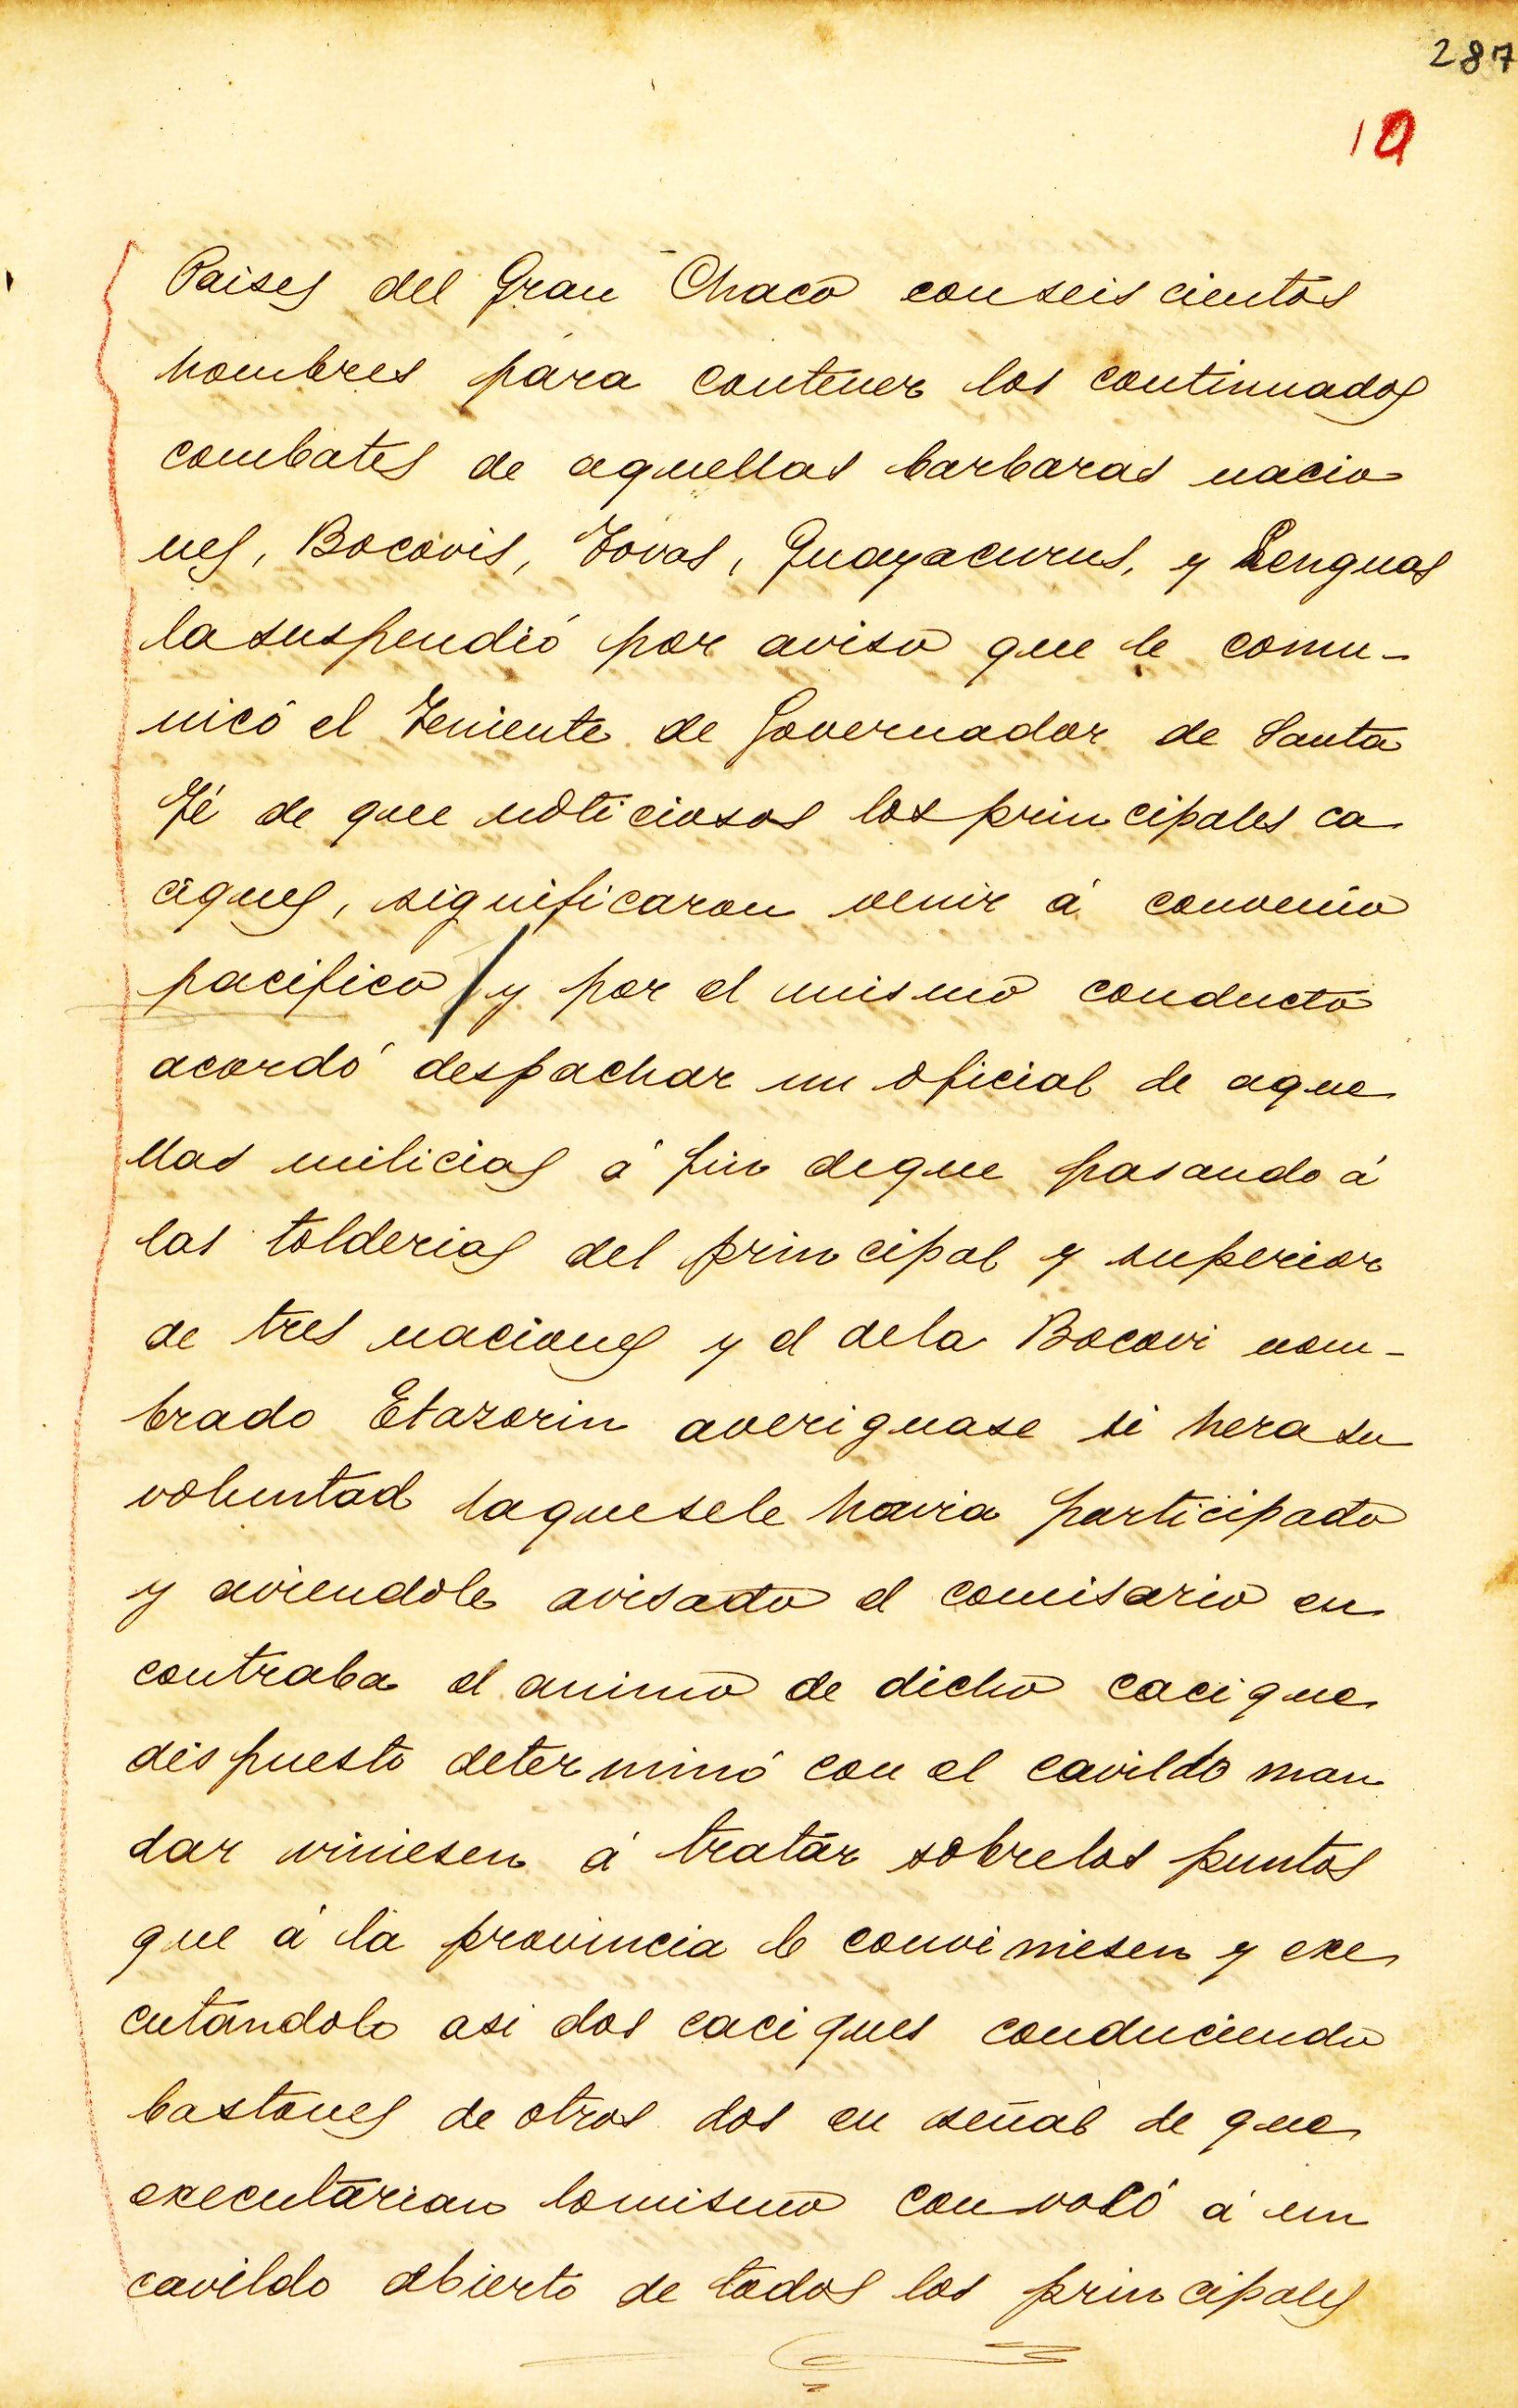 287
10
Paises del Gran Chaco conseis cientos
hombres para contener los continuados
combates de aquellas barbaras nacio
nes, Bocovis, Tovas, Guayacurus, y Lenguas
la suspendió por aviso que le comu-
nicó el Teniente de Governador de Santa
Fé de que noticiosos los principales ca
ciques, significaron venir á convenio
pacifico y por el mismo conducto
acordó despachar un oficial de aque
llas milicias á fin deque pasando á
las tolderias del principal y superior
de tres naciones y el dela Bocovi nom-
brado Etazorin averiguase si hera su
voluntad laquesele havia participado
y aviendole avisado el comisario en
contraba el animo de dicho cacique
dispuesto determinó con el cavildo man
dar viniesen á tratar sobrelos puntos
que á la provincia le conviniesen y exe
cutandolo asi dos caciques conduciendo
bastones de otros dos en señal de que
executarian lomismo convocó á un
cavildo abierto de todos los principales